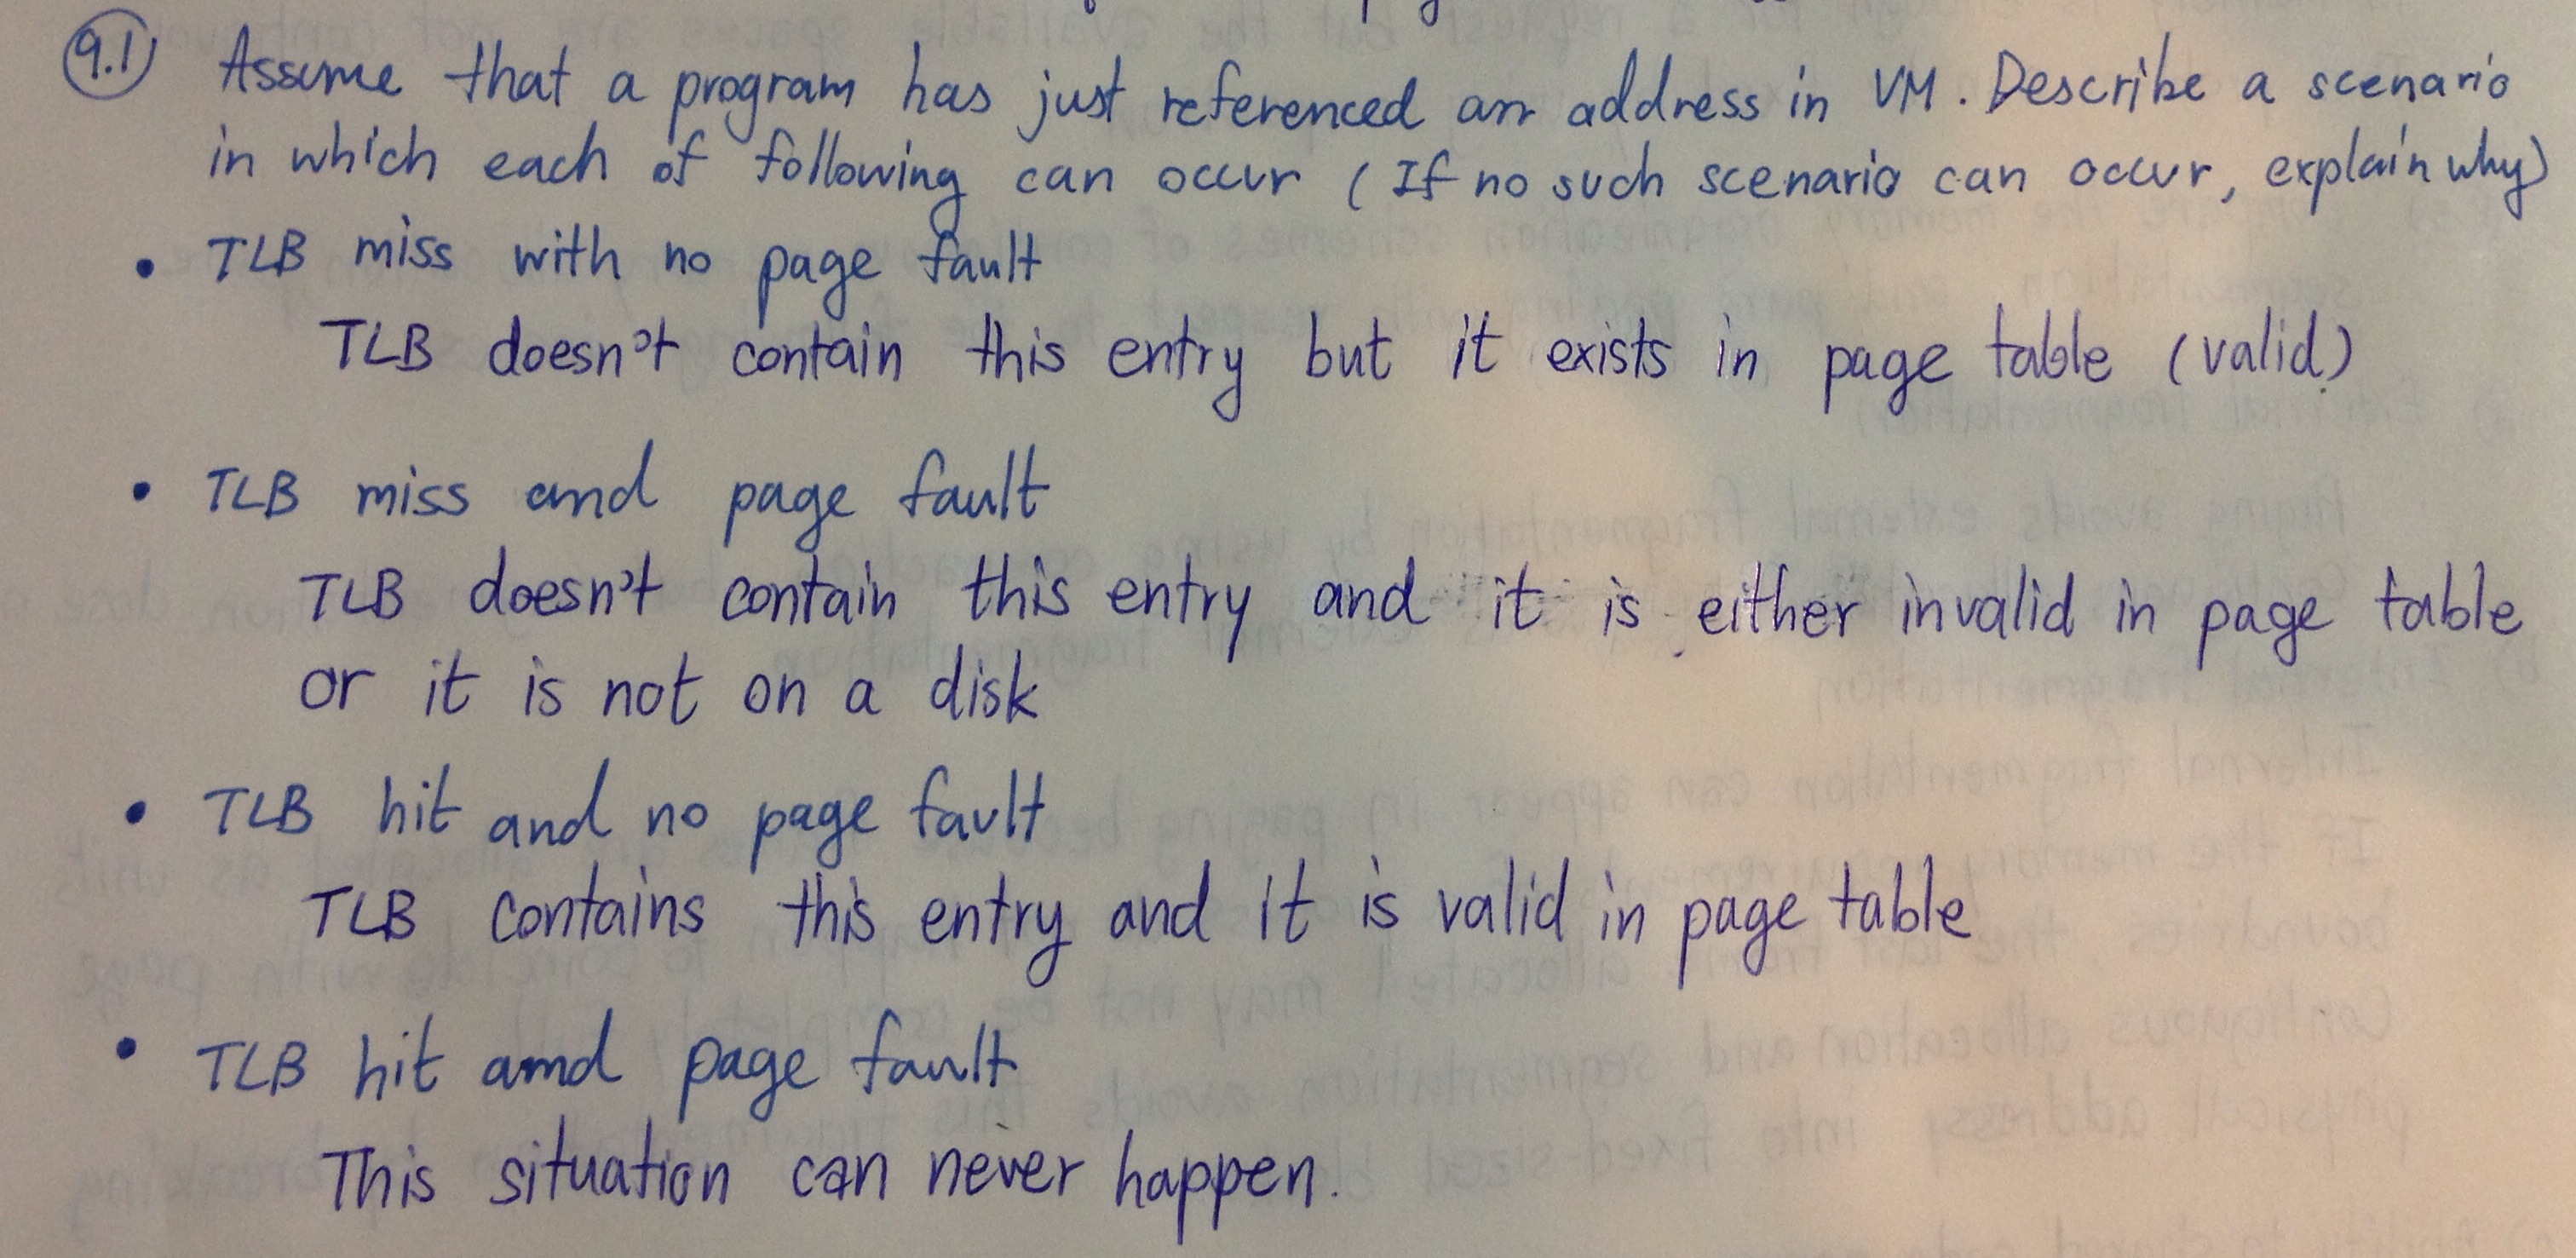 9.1 Assume that a program has just referenced an address in VM. Describe a scenario
in which each of following can occur (If no such scenario can occur, explain why)
• TLB miss with no page fault
TLB doesn't contain this entry but it exists in page table (valid)
• TLB miss and page fault
TLB doesn't contain this entry and it is either invalid in page table
or it is not on a disk
• TLB hit and no page fault
TLB contains this entry and it is valid in page table
• TLB hit and page fault
This situation can never happen.